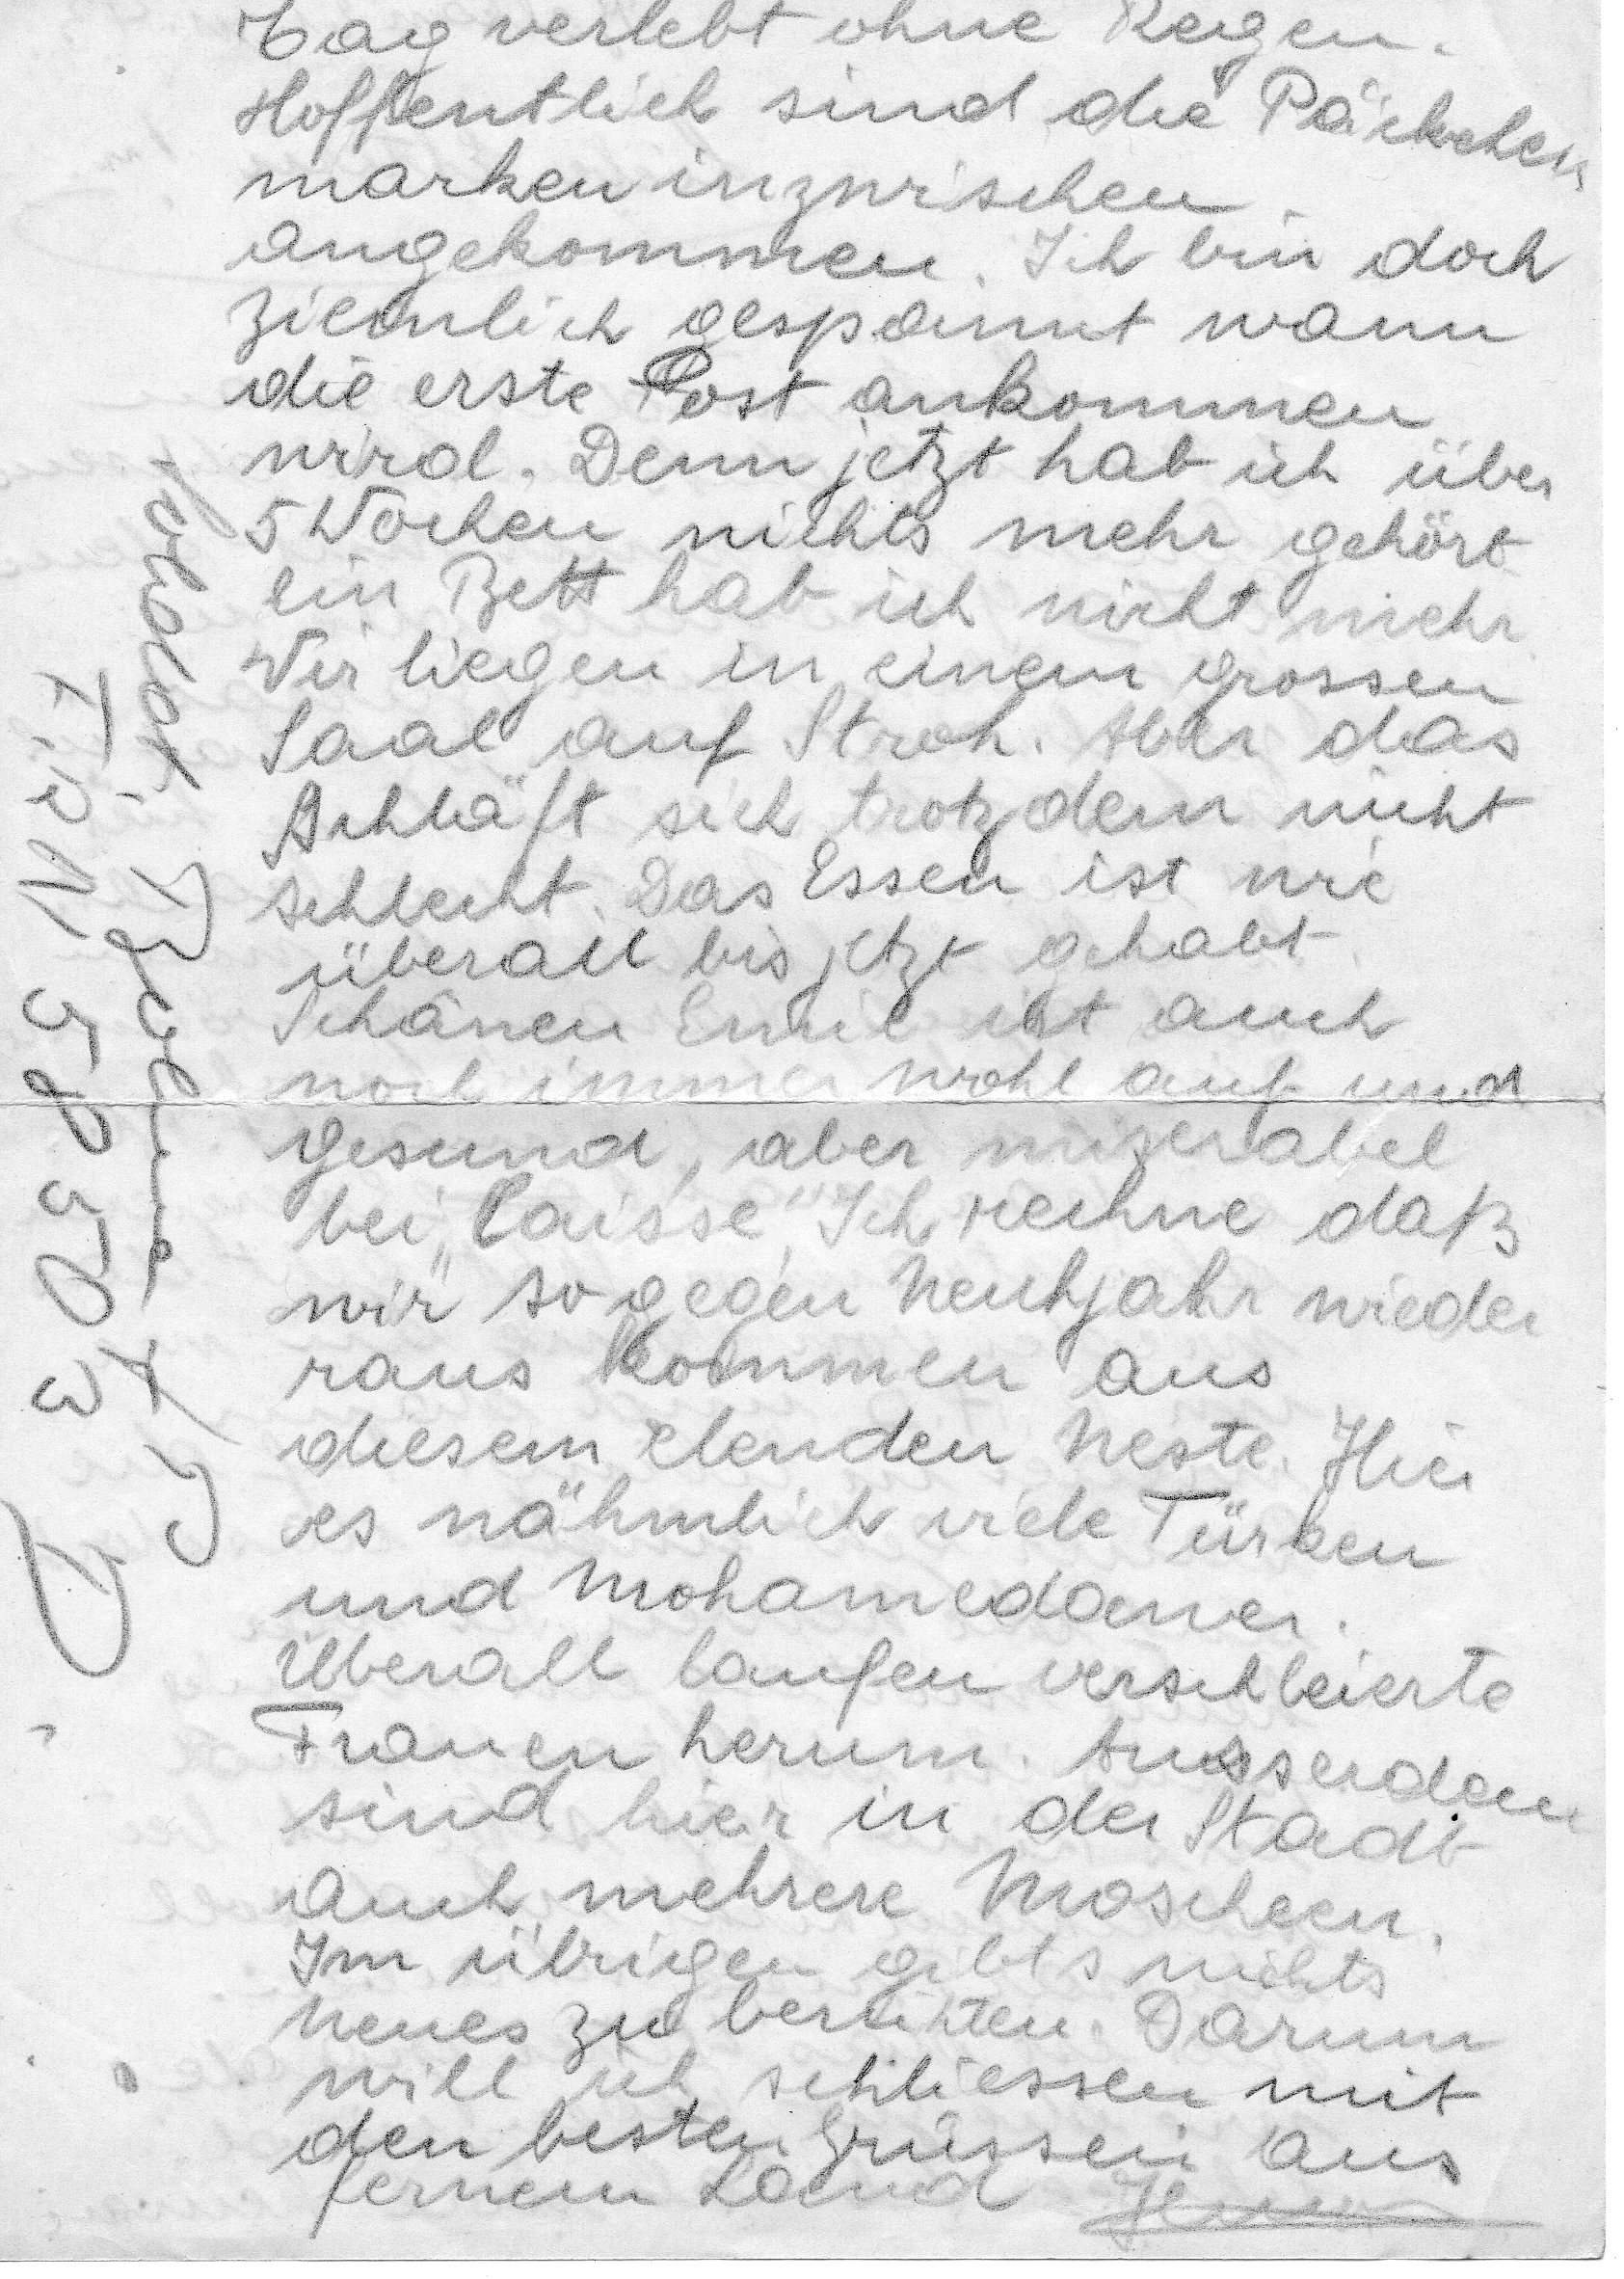 Tag verlebt ohne Regen.
Hoffentlich sind die Päckchen
marken inzwischen
angekommen. Ich bin doch
ziemlich gespannt wann
die erste Post ankommen
wird. Denn jetzt hab ich über
5 Wochen nichts mehr gehört
ein Bett hab ich nicht mehr
Wir liegen in einem grossen
Saal auf Stroh. Aber das
Schläft sich trotzdem nicht
schlecht. Das Essen ist wie
überall bis jetzt gehabt.
Schänen Emil ist auch
noch immer wohl auf und
gesund, aber miserabel
bei „Caisse" Ich rechne daß
wir so gegen Neuhjahr wieder
raus kommen aus
diesem elenden Neste. Hier
es nähmlich viele Türken
und Mohamedaner.
Überall laufen verschleierte
Frauen herum. Ausserdem
sind hier in der Stadt
auch mehrere Moscheen.
Im übrigen gibts nichts
neues zu berichten. Darum
will ich schliessen mit
den besten Grüssen aus
fernem Land